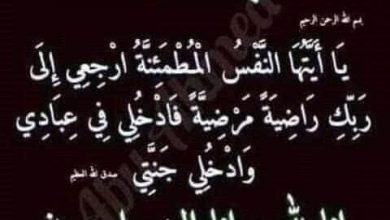 بسم الله الرحمن الرحيم
يَا أَيَّتُهَا النَّفْسُ الْمُطْمَئِنَّةُ ارْجِعِي إِلَى
رَبِّكِ رَاضِيَةً مَرْضِيَّةً فَادْخُلِي فِي عِبَادِي
وَادْخُلِي جَنَّتِي صدق الله العظيم